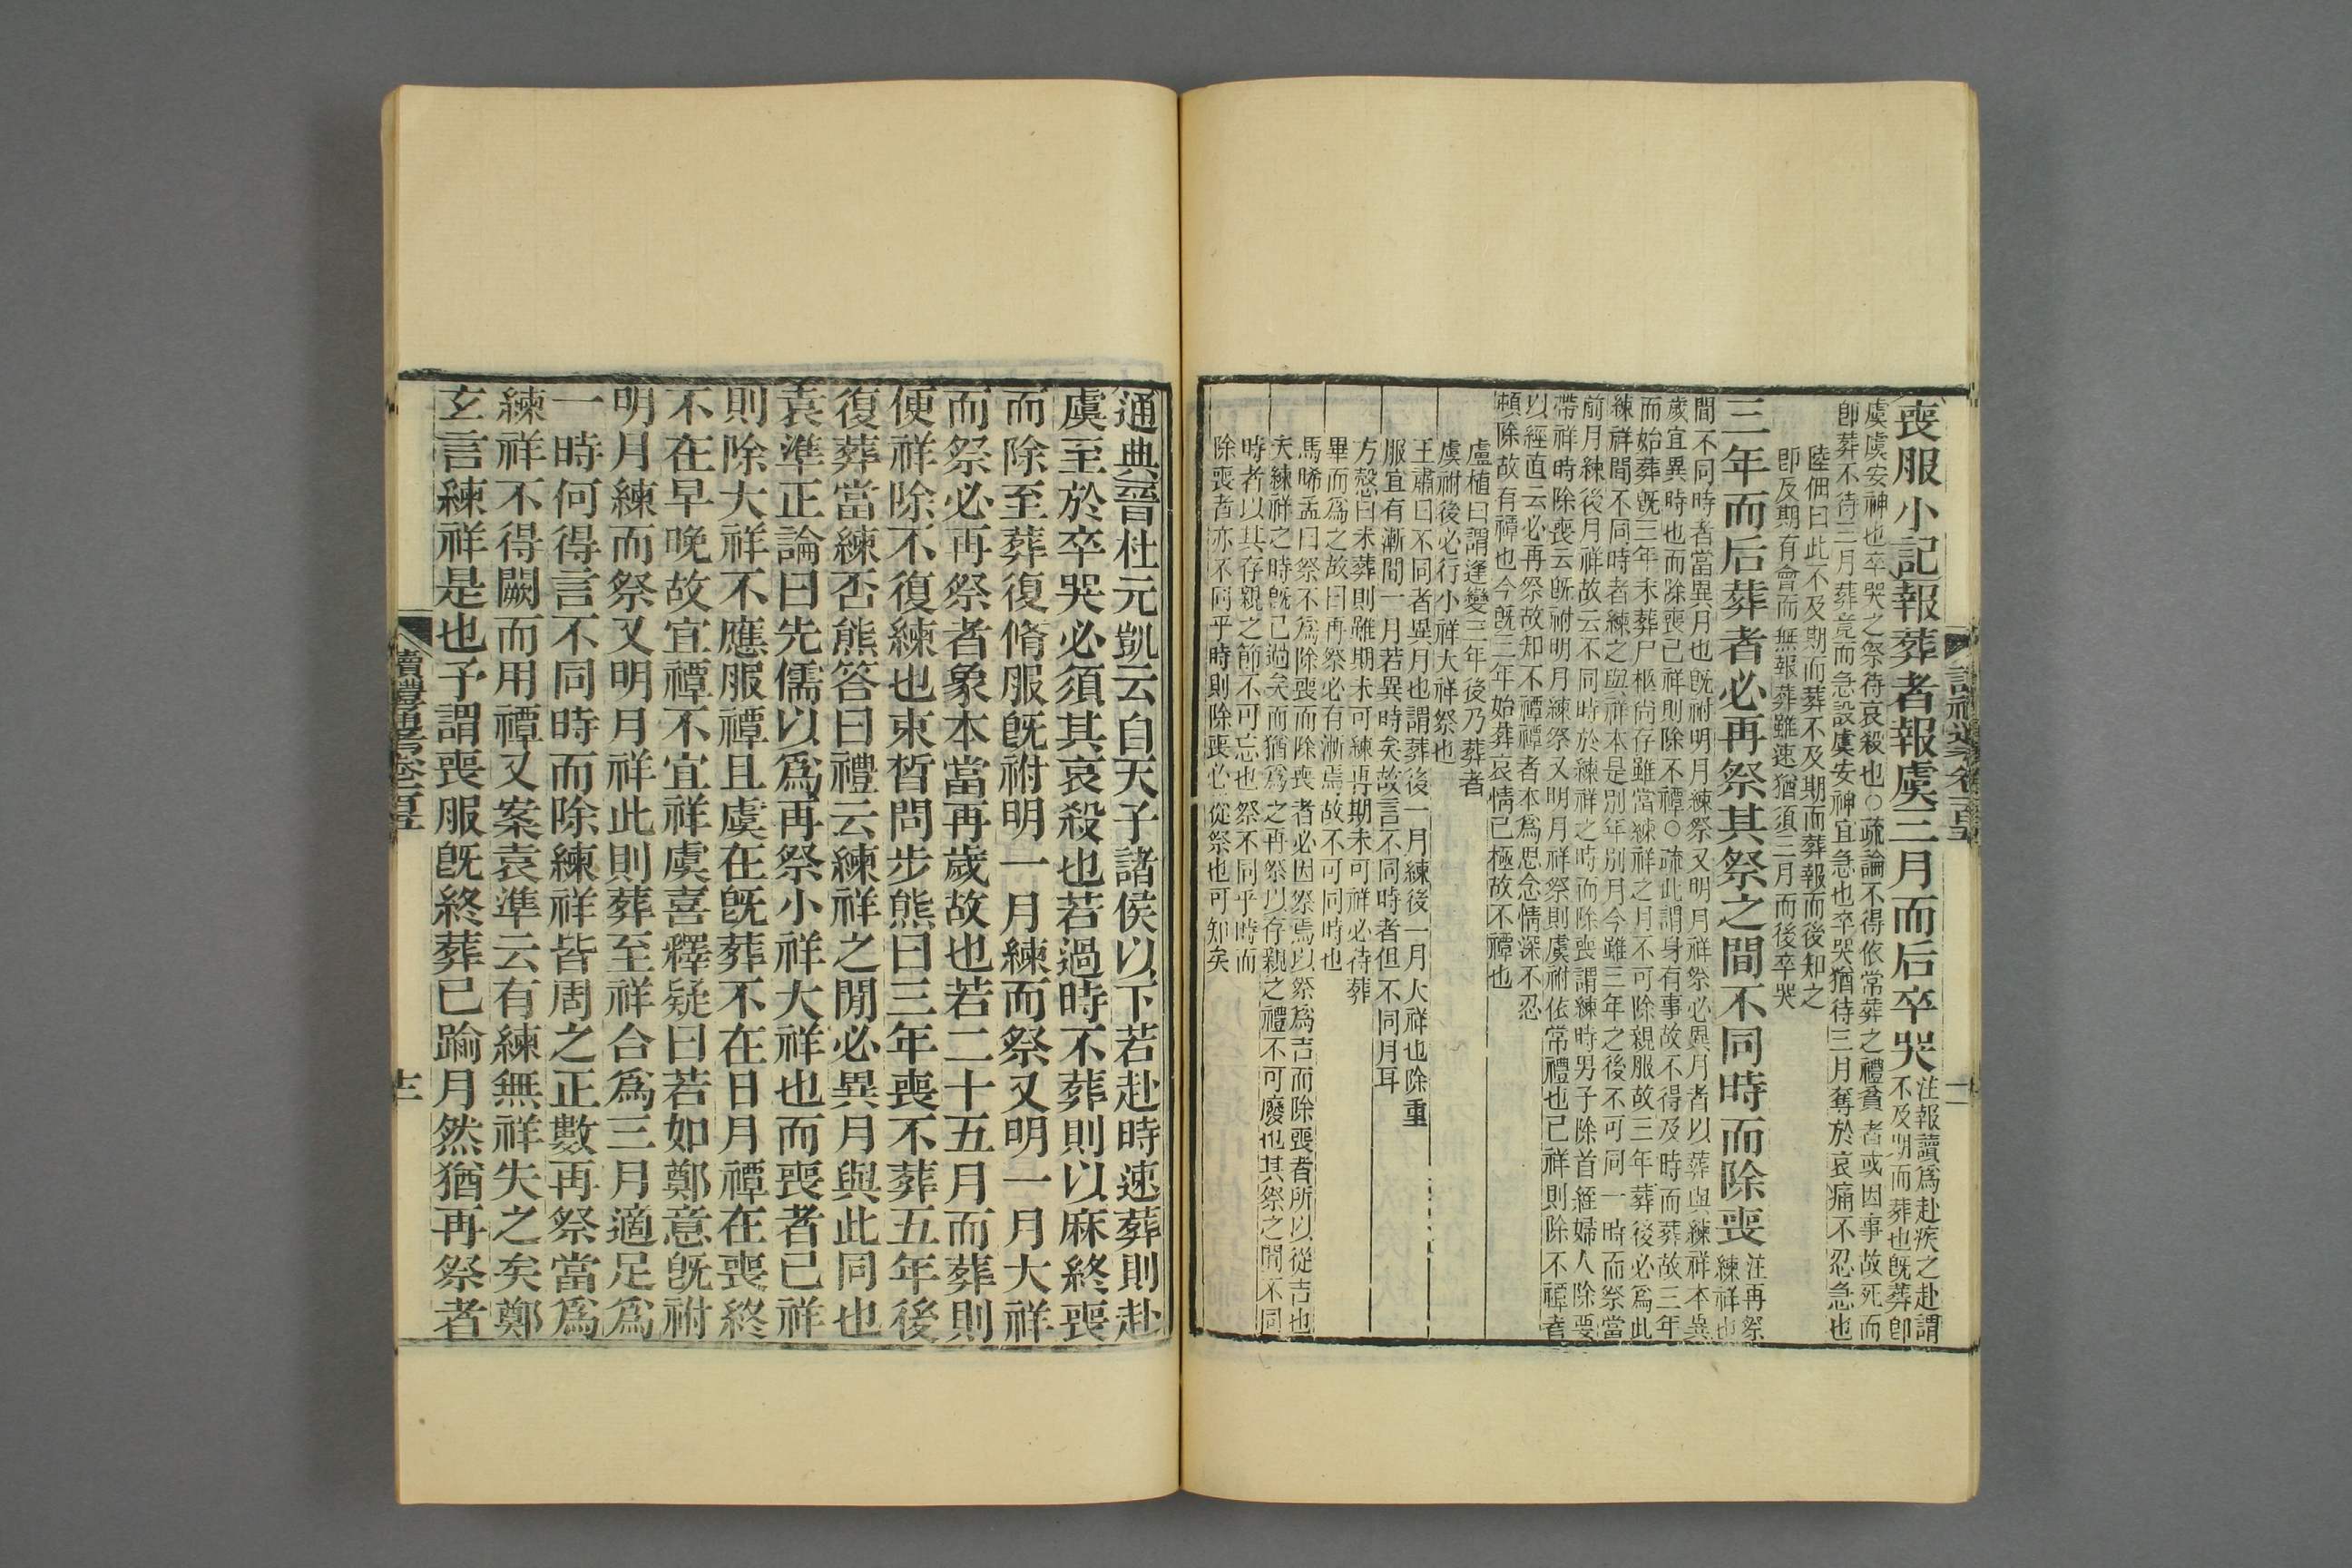 喪服小記報葬者報虞三月而后卒哭
注報讀爲赴疾之赴謂
不及期而葬也既葬卽
虞虞安神也卒哭之祭待哀殺也○疏論不得依常葬之禮貧者或因事故死而
卽葬不待三月葬竟而急設虞安神宜急也卒哭猶待三月奪於哀痛不忍急也
陸佃曰此不及期而葬不及期而葬報而後知之
卽反期有會而無報葬雖速猶須三月而後卒哭
三年而后葬者必再祭其祭之間不同時而除喪
注再祭
練祥也
間不同時者當異月也既祔明月練祭又明月祥祭必異月者以葬與練祥本異
歲宜異時也而除喪已祥則除不禫○疏此謂身有事故不得及時而葬故三年
而始葬既三年未葬尸柩尚存雖當練祥之月不可除親服故三年葬後必爲此
練祥間不同時者練之與祥本是別年別月今雖三年之後不可同一時而祭當
前月練後月祥故云不同時於練祥之時而除喪謂練時男子除首絰婦人除要
帶祥時除喪云既祔明月練祭又明月祥祭則虞祔依常禮也已祥則除不禫者
以經直云必再祭故知不禫禫者本爲思念情深不忍
頓除故有禫也今既三年始葬哀情已極故不禫也
盧植曰謂逢變三年後乃葬者
虞祔後必行小祥大祥祭也
王肅曰不同者異月也謂葬後一月練後一月大祥也除重
服宜有漸間一月若異時矣故言不同時者但不同月耳
方慤曰未葬則雖期未可練再期未可祥必待葬
畢而爲之故曰再祭必有漸焉故不可同時也
馬晞孟曰祭不爲除喪而除喪者必因祭焉以祭爲吉而除喪者所以從吉也
夫練祥之時既已過矣而猶爲之再祭以存親之禮不可廢也其祭之間不同
時者以其存親之節不可忘也祭不同乎時而
除喪者亦不同乎時則除喪必從祭也可知矣
通典晉杜元凱云自天子諸侯以下若赴時速葬則赴
虞至於卒哭必須其哀殺也若過時不葬則以麻終喪
而除至葬復脩服既祔明一月練而祭又明一月大祥
而祭必再祭者象本當再歲故也若二十五月而葬則
便祥除不復練也束晳問步熊曰三年喪不葬五年後
復葬當練否熊答曰禮云練祥之閒必異月與此同也
袁準正論曰先儒以爲再祭小祥大祥也而喪者已祥
則除大祥不應服禫且虞在既葬不在日月禫在喪終
不在早晚故宜禫不宜祥虞喜釋疑曰若如鄭意既祔
明月練而祭又明月祥此則葬至祥合爲三月適足爲
一時何得言不同時而除練祥皆周之正數再祭當爲
練祥不得闕而用禫又案袁準云有練無祥失之矣鄭
玄言練祥是也予謂喪服既終葬已踰月然猶再祭者
讀禮通考卷一百五
十二